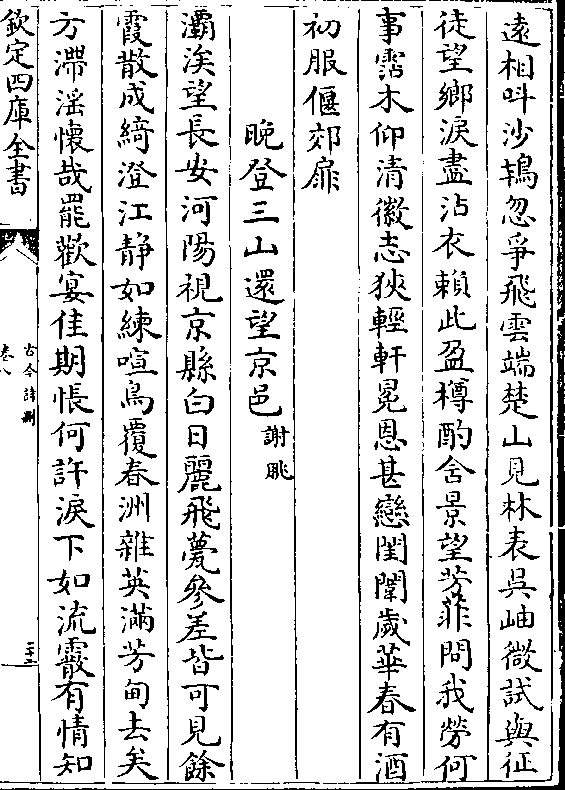 遠相呌沙鴇忽爭飛雲端楚山見林表吳岫微試與征
徒望鄉淚盡沾衣賴此盈樽酌含景望芳菲問我勞何
事霑木仰清徽志狹輕軒冕恩甚戀閨闈歲華春有酒
初服偃郊扉
晚登三山還望京邑 謝眺
灞涘望長安河陽視京縣白日麗飛甍參差皆可見餘
霞散成綺澄江靜如練喧鳥覆春洲雜英滿芳甸去矣
方滯淫懷哉罷歡宴佳期悵何許淚下如流霰有情知
欽定四庫全書
古今詩刪
卷八